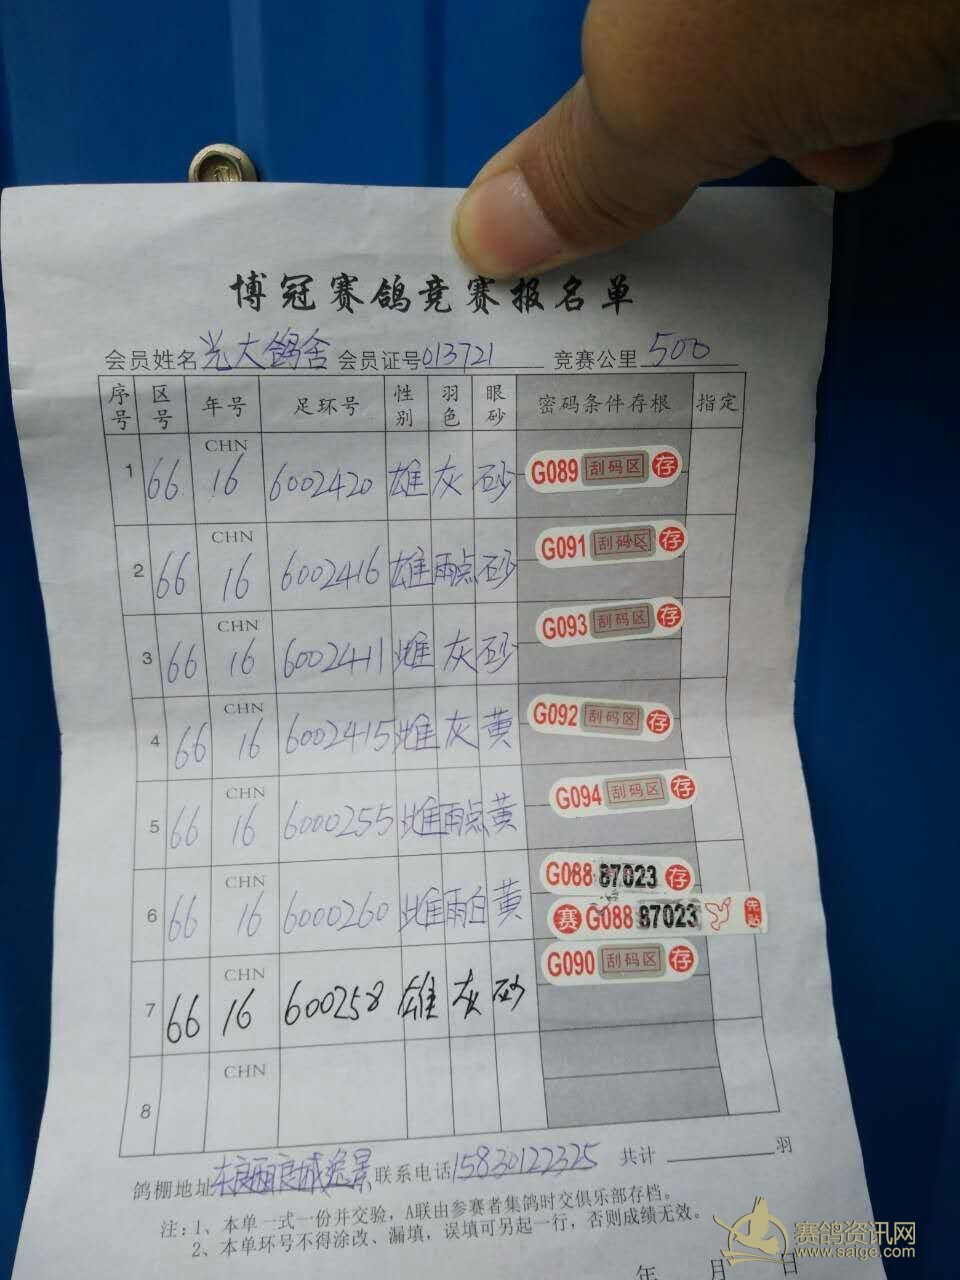 博冠赛鸽竞赛报名单
会员姓名 光大鸽舍 会员证号 013721 竞赛公里 500
序号 区号 年号 足环号 性别 羽色 眼砂 密码条件存根 指定
1 66 CHN 16 6002420 雄 灰 砂 G089 刮码区 存
2 66 CHN 16 6002416 雄 雨点 砂 G091 刮码区 存
3 66 CHN 16 6002411 雌 灰 砂 G093 刮码区 存
4 66 CHN 16 6002415 雌 灰 黄 G092 刮码区 存
5 66 CHN 16 6000255 雌 雨点 黄 G094 刮码区 存
6 66 CHN 16 6000260 雌 雨白 黄 G088 87023 存
赛 G088 87023 先贴
7 66 CHN 16 600258 雄 灰 砂 G090 刮码区 存
8 CHN
鸽棚地址 联系电话 15830122325 共计 羽
注：1、本单一式一份并交验，A联由参赛者集鸽时交俱乐部存档。
2、本单环号不得涂改、漏填，误填可另起一行，否则成绩无效。
年 月 日
赛鸽资讯网
www.saige.com